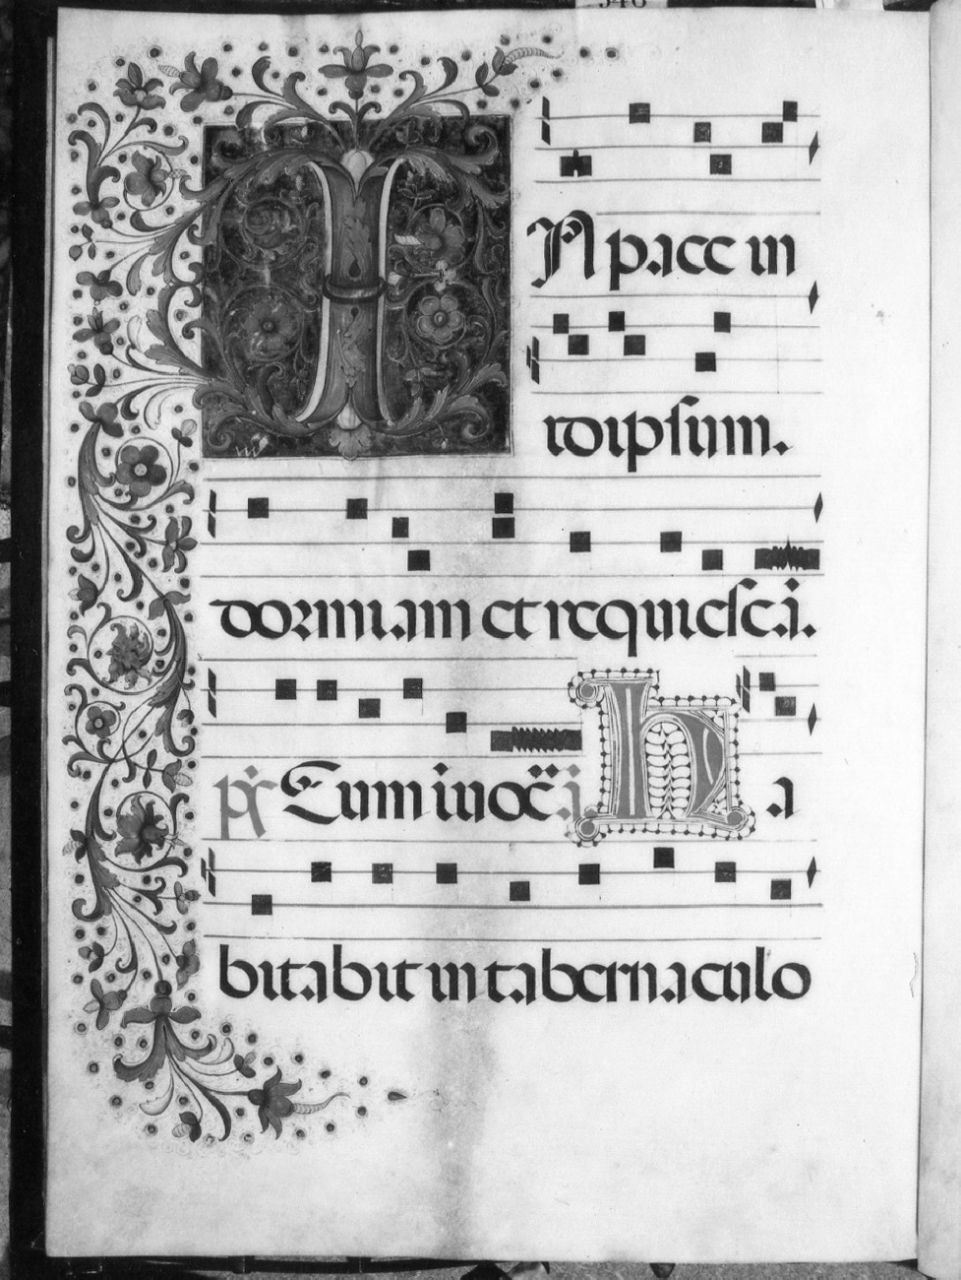 IN pace in
idipsum.
dormiam et requiesca.
ps. Cum invoca. Ha
bitabit in tabernaculo